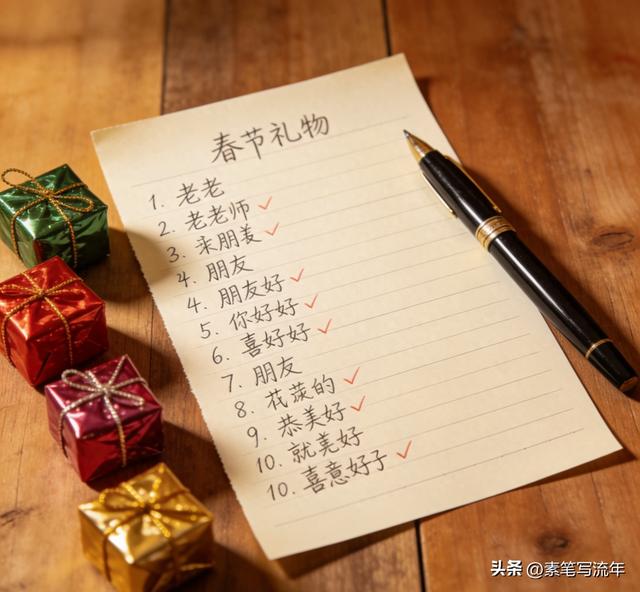 春节礼物
1. 老老
2. 老老师 ✓
3. 来朋美 ✓
4. 朋友
4. 朋友好 ✓
5. 你好好 ✓
6. 喜好好 ✓
7. 朋友
8. 花的 ✓
9. 恭美好 ✓
10. 就美好
10. 喜意好子 ✓
头条 @素笔写流年